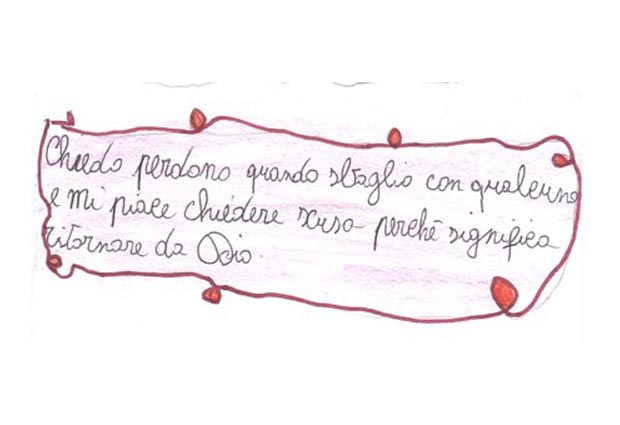 Chiedo perdono quando sbaglio con qualcuno
e mi piace chiedere scusa perchè significa
ritornare da Dio.